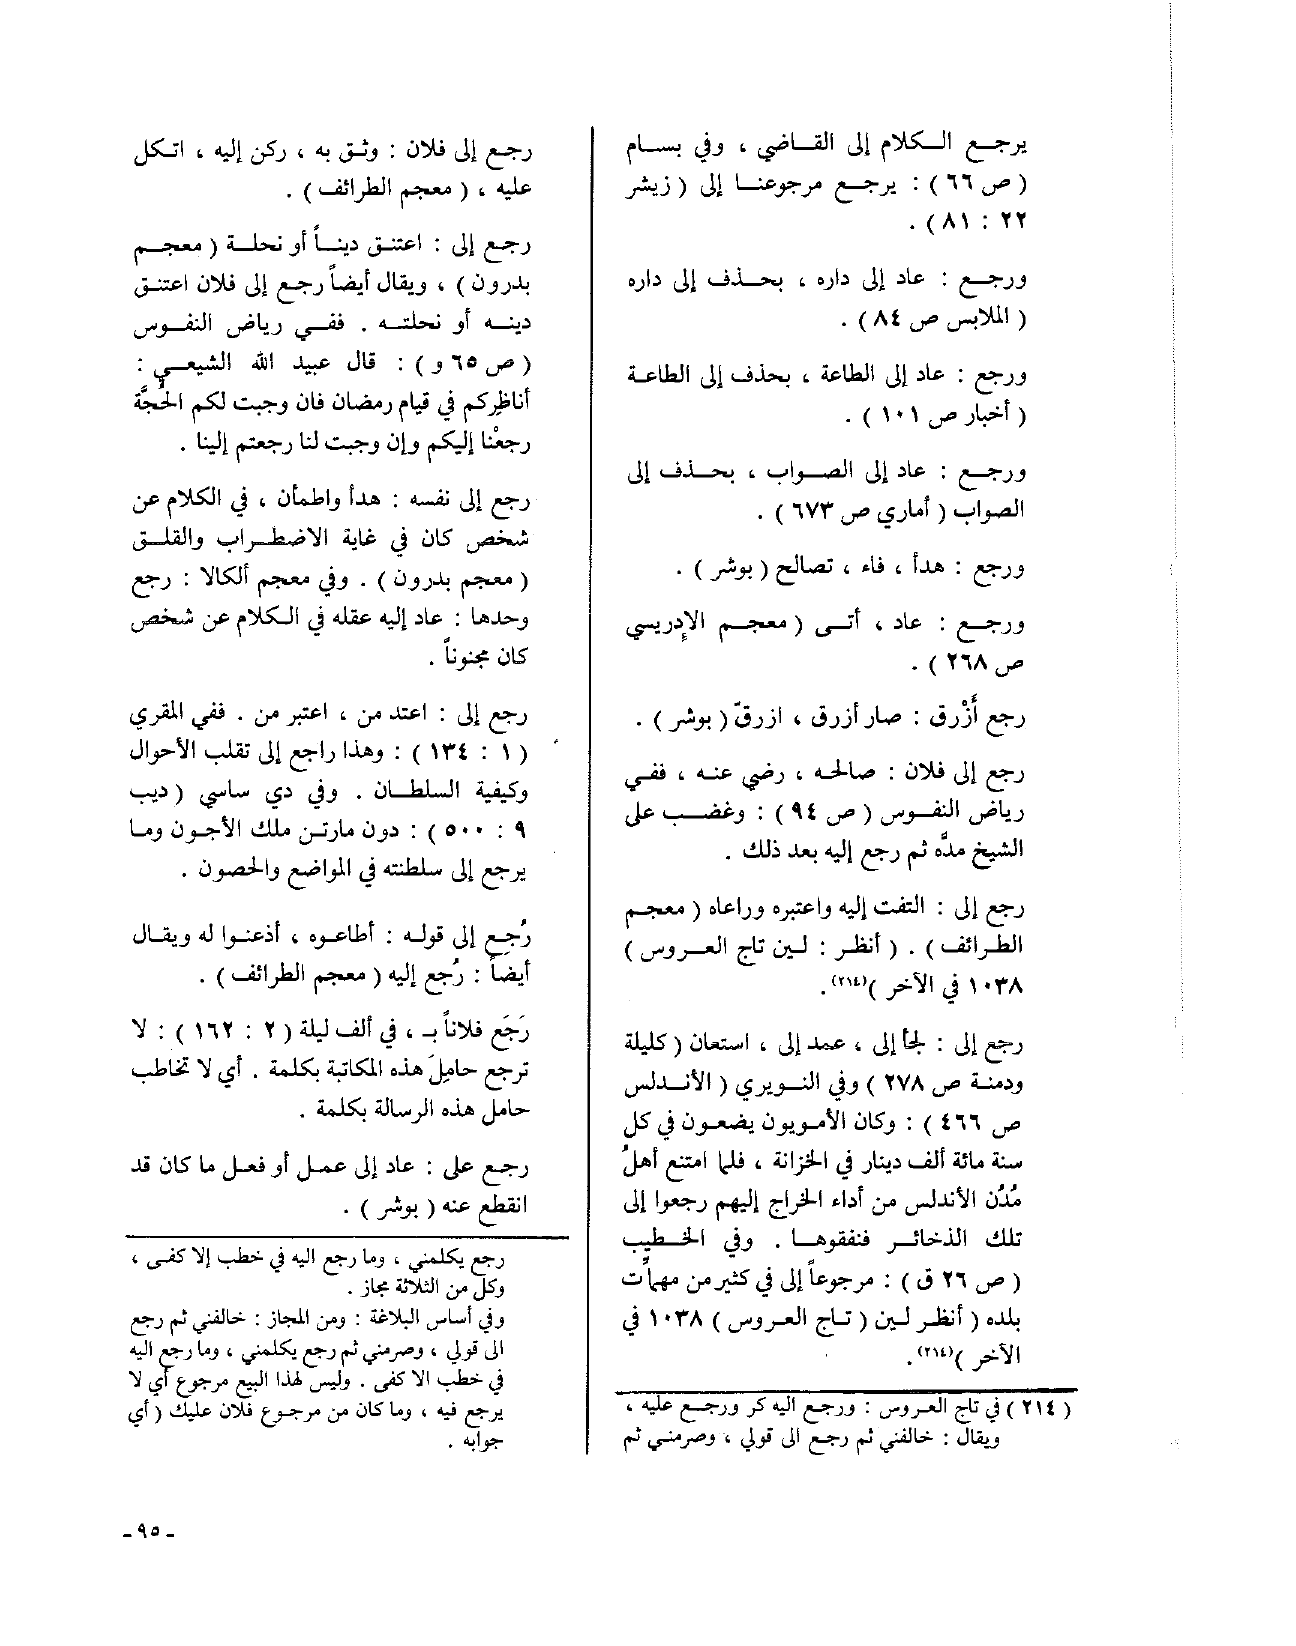 يرجع الكلام إلى القاضي ، وفي بسام
( ص ٦٦ ) : يرجع مرجوعنا إلى ( زيشر
٢٢ : ٨١ ) .
ورجع : عاد إلى داره ، بحذف إلى داره
( الملابس ص ٨٤ ) .
ورجع : عاد إلى الطاعة ، بحذف إلى الطاعة
( أخبار ص ١٠١ ) .
ورجع : عاد إلى الصواب ، بحذف إلى
الصواب ( أماري ص ٦٧٣ ) .
ورجع : هدأ ، فاء ، تصالح ( بوشر ) .
ورجع : عاد ، أتى ( معجم الإدريسي
ص ٢٦٨ ) .
رجع أزْرق : صار أزرق ، ازرقّ ( بوشر ) .
رجع إلى فلان : صالحه ، رضي عنه ، ففي
رياض النفوس ( ص ٩٤ ) : وغضب على
الشيخ مدَّه ثم رجع إليه بعد ذلك .
رجع إلى : التفت إليه واعتبره وراعاه ( معجم
الطرائف ) . ( أنظر : لين تاج العروس )
١٠٣٨ في الآخر )(٢١٤) .
رجع إلى : لجأ إلى ، عمد إلى ، استعان ( كليلة
ودمنة ص ٢٧٨ ) وفي النويري ( الأندلس
ص ٤٦٦ ) : وكان الأمويون يضعون في كل
سنة مائة ألف دينار في الخزانة ، فلما امتنع أهلُ
مُدُن الأندلس من أداء الخراج إليهم رجعوا إلى
تلك الذخائر فنفقوها . وفي الخطيب
( ص ٢٦ ق ) : مرجوعاً إلى في كثير من مهمَّات
بلده ( أنظر لين ( تاج العروس ) ١٠٣٨ في
الآخر )(٢١٤) .
( ٢١٤ ) في تاج العروس : ورجع اليه كر ورجع عليه ،
ويقال : خالفني ثم رجع الى قولي ، وصرمني ثم
رجع إلى فلان : وثق به ، ركن إليه ، اتكل
عليه ، ( معجم الطرائف ) .
رجع إلى : اعتنق ديناً أو نحلة ( معجم
بدرون ) ، ويقال أيضاً رجع إلى فلان اعتنق
دينه أو نحلته . ففي رياض النفوس
( ص ٦٥ و ) : قال عبيد الله الشيعي :
أناظِركم في قيام رمضان فان وجبت لكم الحُجَّة
رجعْنا إليكم وإن وجبت لنا رجعتم إلينا .
رجع إلى نفسه : هدأ واطمأن ، في الكلام عن
شخص كان في غاية الاضطراب والقلق
( معجم بدرون ) . وفي معجم ألكالا : رجع
وحدها : عاد إليه عقله في الكلام عن شخص
كان مجنوناً .
رجع إلى : اعتد من ، اعتبر من . ففي المقري
( ١ : ١٣٤ ) : وهذا راجع إلى تقلب الأحوال
وكيفية السلطان . وفي دي ساسي ( ديب
٩ : ٥٠٠ ) : دون مارتن ملك الأجون وما
يرجع إلى سلطنته في المواضع والحصون .
رُجِع إلى قوله : أطاعوه ، أذعنوا له ويقال
أيضاً : رُجع إليه ( معجم الطرائف ) .
رَجَع فلاناً بـ ، في ألف ليلة ( ٢ : ١٦٢ ) : لا
ترجع حامِلَ هذه المكاتبة بكلمة . أي لا تخاطب
حامل هذه الرسالة بكلمة .
رجع على : عاد إلى عمل أو فعل ما كان قد
انقطع عنه ( بوشر ) .
رجع يكلمني ، وما رجع اليه في خطب إلا كفى ،
وكل من الثلاثة مجاز .
وفي أساس البلاغة : ومن المجاز : خالفني ثم رجع
الى قولي ، وصرمني ثم رجع يكلمني ، وما رجع اليه
في خطب الا كفى . وليس لهذا البيع مرجوع أي لا
يرجع فيه ، وما كان من مرجوع فلان عليك ( أي
جوابه .
ـ ٩٥ ـ